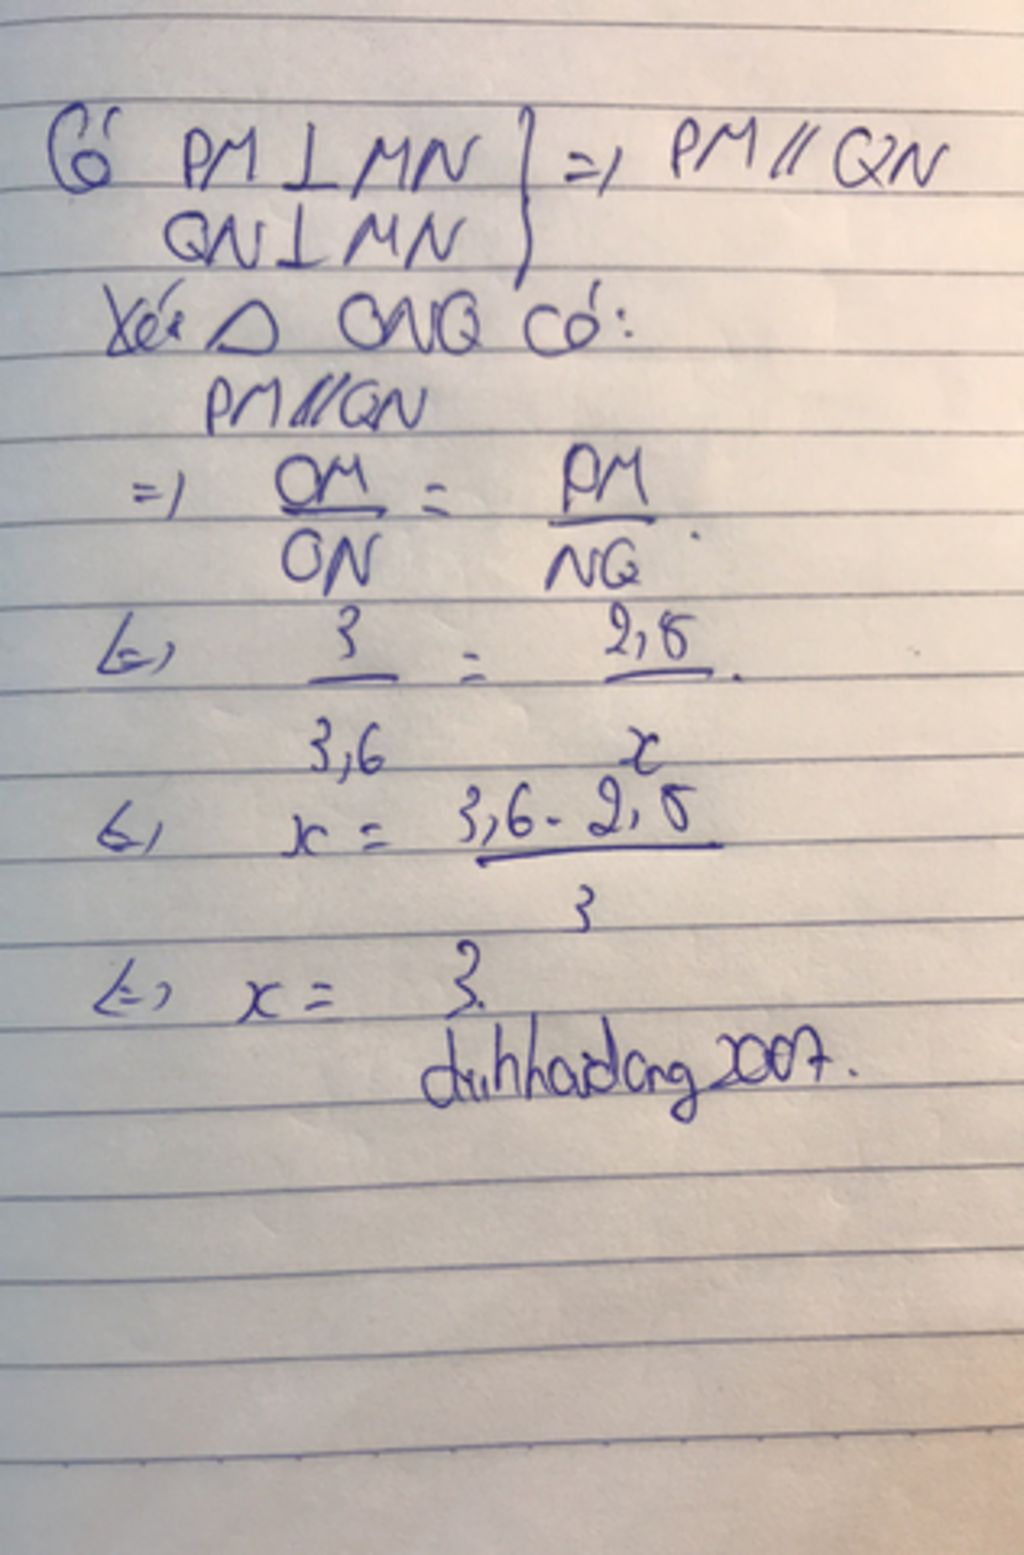 Có PM ⊥ MN } => PM // QN
QN ⊥ MN
Xét Δ ONQ có:
PM // QN
=> OM/ON = PM/NQ.
<=> 3/3,6 = 2,5/x.
<=> x = 3,6. 2,5/3
<=> x = 3.
dinhhaidang2007.